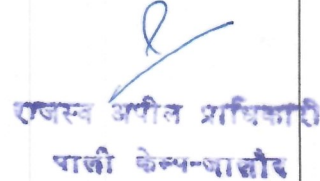 राजस्व अपील प्राधिकारी
पाली केम्प-जालौर